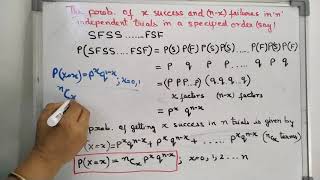 The prob. of x success and (n-x) failures in 'n'
independent trials in a specified order (say)
SFSS ...... FSF
P(SFSS....FSF) = P(S) P(F) P(S) P(S) .... P(F) P(S) P(F)
= p q p p ..... q p q
P(X=x) = p^x q^{n-x}; x=0,1
= (p p p ...) (q. q. q. q)
nCx
x factors (n-x) factors
= p^x q^{n-x}
prob. of getting x success in n trials is given by
(X=x) = p^x q^{n-x} + p^x q^{n-x} + ..... p^x q^{n-x} (nCx terms)
P(X=x) = nCx p^x q^{n-x}, x=0,1,2...n